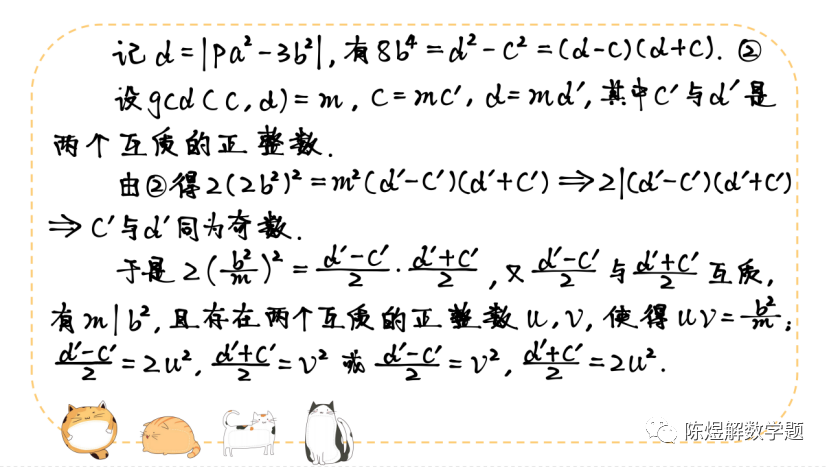 记 d=|pa²-3b²|,有8b⁴=d²-c²=(d-c)(d+c). ②
设 gcd(c,d)=m, c=mc', d=md',其中c'与d'是
两个互质的正整数.
由②得2(2b²)²=m²(d'-c')(d'+c')⟹2|(d'-c')(d'+c')
⟹ c'与d'同为奇数.
于是 2(b²/m)²=(d'-c')/2·(d'+c')/2,又(d'-c')/2与(d'+c')/2互质,
有m|b²,且存在两个互质的正整数u,v,使得uv=b²/m;
(d'-c')/2=2u²,(d'+c')/2=v² 或 (d'-c')/2=v²,(d'+c')/2=2u².
陈煜解数学题